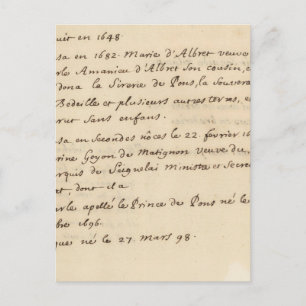 uit en 1648.
sa en 1682. Marie d'Albret veuve
rle Amanieu d'Albret son cousin, e
dona la Sirerie de Pons, la Souvera
Bedeille et plusieurs autres terres, e
rut sans enfans.
sa en secondes nôces le 22 février 16
rine Goyon de Matignon veuve du
rquis de Seignelai Ministre et Secre
et dont il a
rle apellé le Prince de Pons né le
bre 1696.
que né le 27. Mars 98.